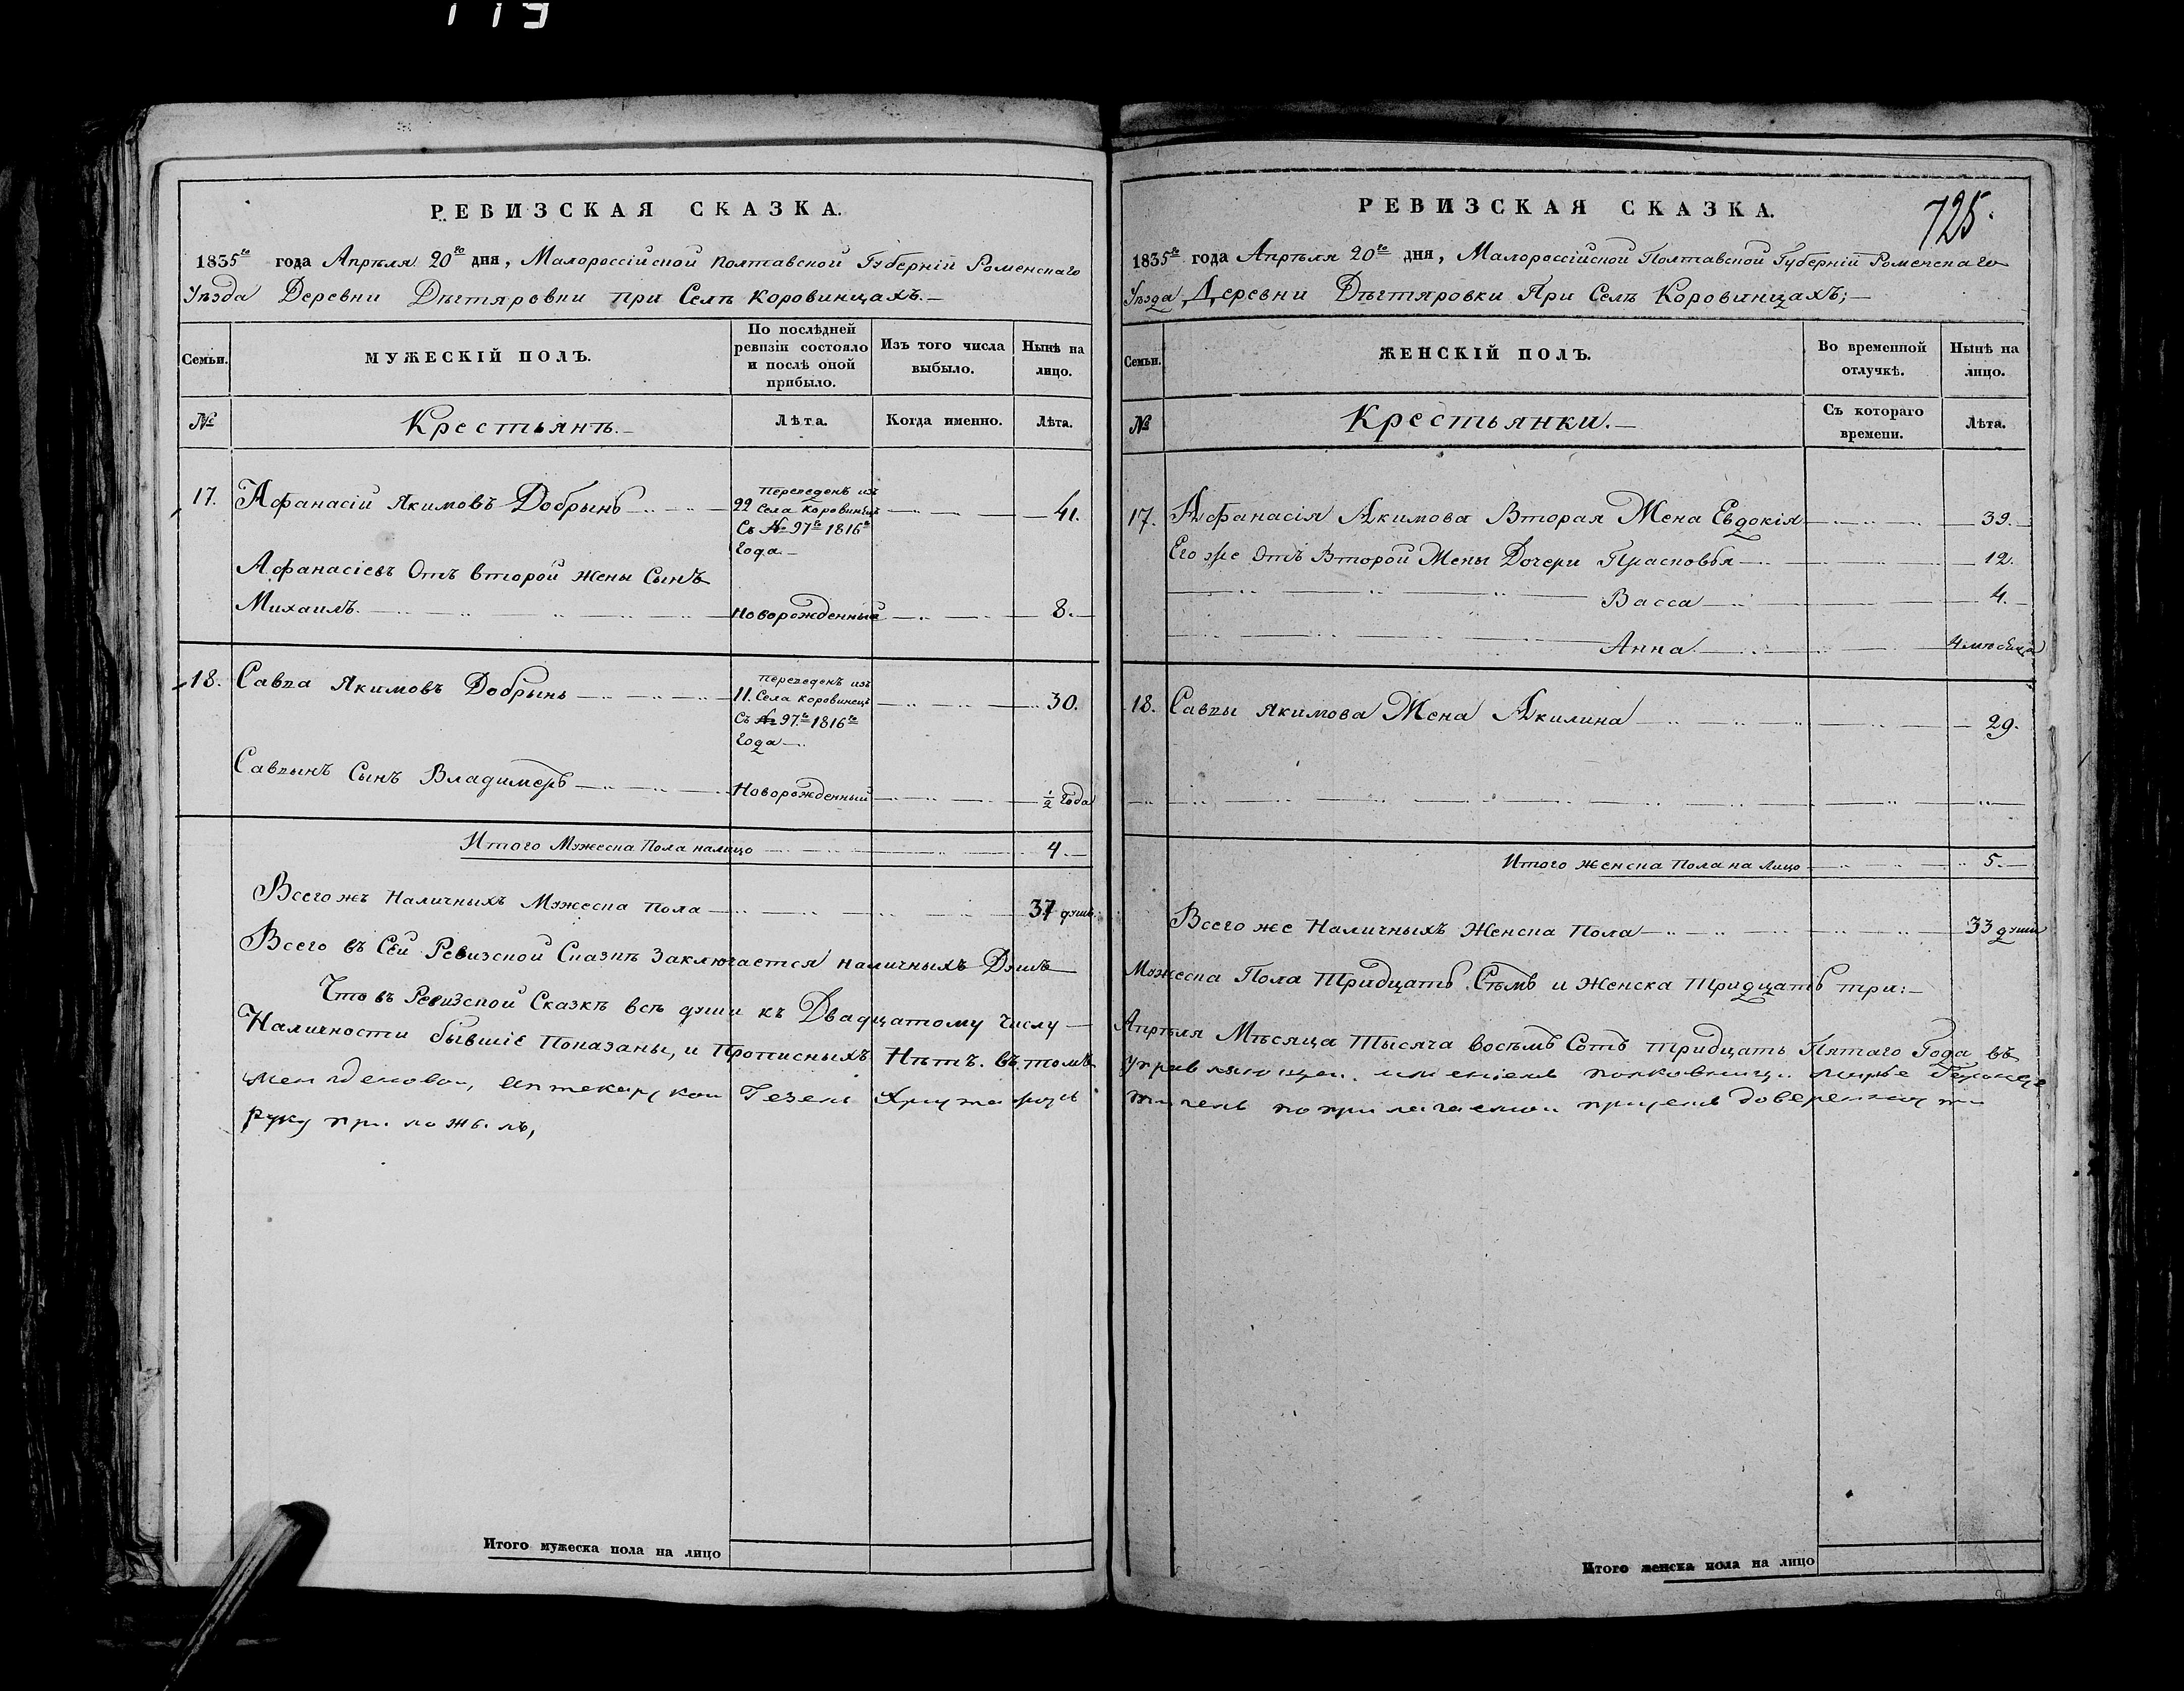 119
РЕВИЗСКАЯ СКАЗКА.
1835го года Апрѣля 20го дня, Малороссійской Полтавской Губерніи Роменскаго
Уѣзда Деревни Дѣгтяровки при Селѣ Коровинцахъ.—
Семьи.
МУЖЕСКІЙ ПОЛЪ.
По послѣдней ревизіи состояло и послѣ оной прибыло.
Изъ того числа выбыло.
Нынѣ на лицо.
№
Крестьянъ.—
Лѣта.
Когда именно.
Лѣта.
17. Афанасій Якимовъ Добрынь
Переведенъ изъ
22 Села Коровинецъ
Съ № 97го 1816го
Года.—
41.
Афанасіевъ Отъ второй жены Сынъ
Михаилъ. Новорожденный 8.—
18. Савва Якимовъ Добрынь
Переведенъ изъ
11. Села Коровинецъ
Съ № 97го 1816го
Года—
30.
Саввынъ Сынъ Владимеръ Новорожденный ½ Года
Итого Мужеска Пола налицо 4.—
Всего жъ Наличныхъ Мужеска пола 37 душъ.
Всего въ Сей Ревизской Сказкѣ Заключается наличныхъ Душъ
Что въ Ревизской Сказкѣ всѣ души къ Двадцатому Числу—
Наличности бывшіе Показаны, и Прописныхъ Нѣтъ. въ томъ
руку приложилъ,
Итого мужеска пола на лицо
РЕВИЗСКАЯ СКАЗКА.
725.
1835го года Апрѣля 20го дня, Малороссійской Полтавской Губерніи Роменскаго
Уѣзда, Деревни Дѣгтяровки При Селѣ Коровинцахъ;—
Семьи.
ЖЕНСКІЙ ПОЛЪ.
Во временной отлучкѣ.
Нынѣ на лицо.
№
Крестьянки.—
Съ котораго времени.
Лѣта.
17. Афанасія Якимова Вторая Жена Евдокія 39.
Его же Отъ Второй Жены Дочери Прасковья 12.
Васса 4.
Анна 4 мѣсяца
18. Саввы Якимова Жена Акилина 29.
Итого женска Пола на Лицо 5.—
Всего же Наличныхъ Женска Пола 33 души
Мужеска Пола Тридцать Сѣмь и Женска Тридцать три:—
Апрѣля Мѣсяца Тысяча восѣмь Сотъ тридцать Пятаго Года въ
Итого женска пола на лицо